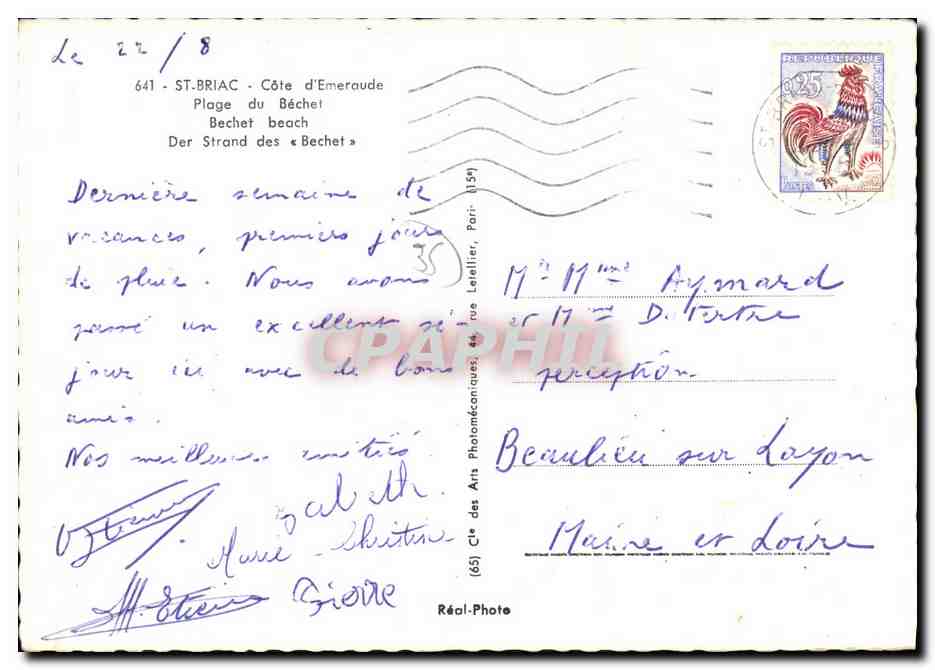 Le 22/8
641 - ST-BRIAC - Côte d'Emeraude
Plage du Béchet
Bechet beach
Der Strand des « Bechet »
Dernière semaine de
vacances, premiers jours
de pluie. Nous avons
passé un excellent sé-
jour ici avec de bons
amis.
Nos meilleures amitiés.
Zabeth.
Marie-Christine
Pierre
35
(65) Cie des Arts Photomécaniques, 44, rue Letellier, Paris (15e)
Réal-Photo
REPUBLIQUE FRANÇAISE
0,25
POSTES
Mr Mme Aymard
et Mme Dutertre
perception
Beaulieu sur Layon
Maine et Loire
CPAPHIL